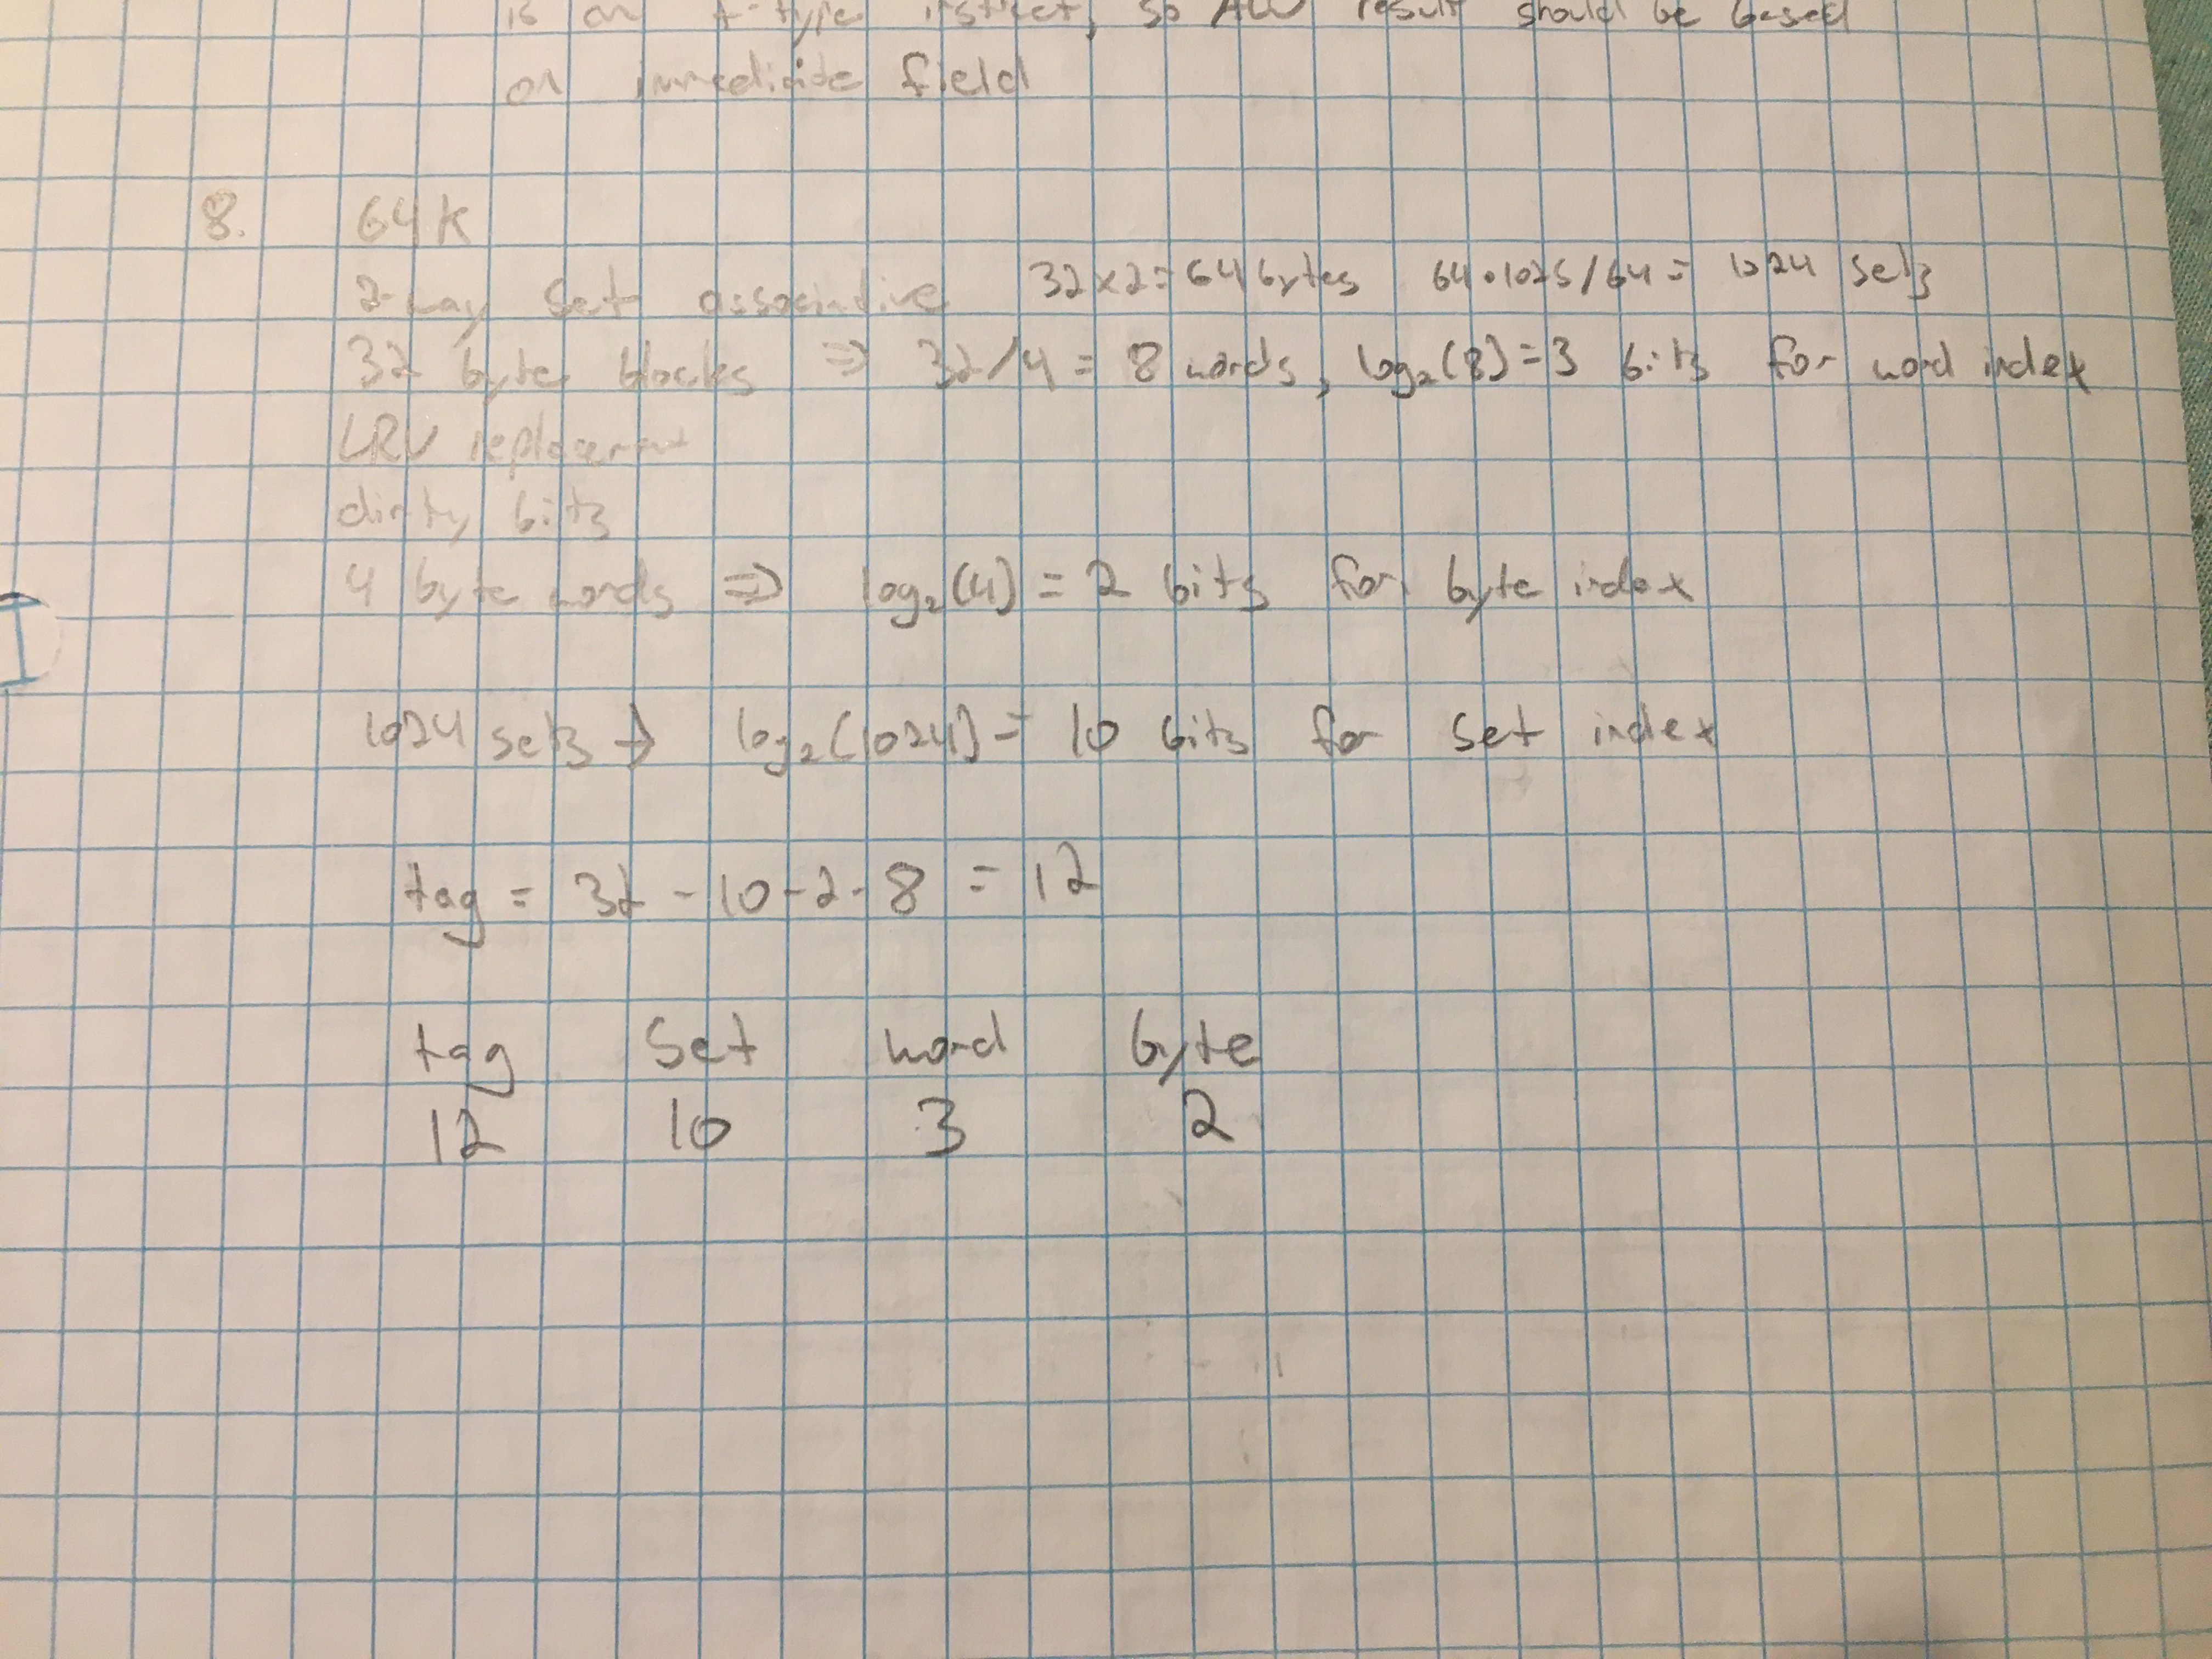 is an I-type instruct, so ALU result should be based
on immediate field
8. 64K
2-way set associative 32x2=64 bytes 64·1025/64 = 1024 sets
32 byte blocks => 32/4 = 8 words, log₂(8)=3 bits for word index
LRU replacement
dirty bits
4 byte words => log₂(4) = 2 bits for byte index
1024 sets → log₂(1024) = 10 bits for set index
tag = 32 - 10 - 2 - 8 = 12
tag set word byte
12 10 3 2